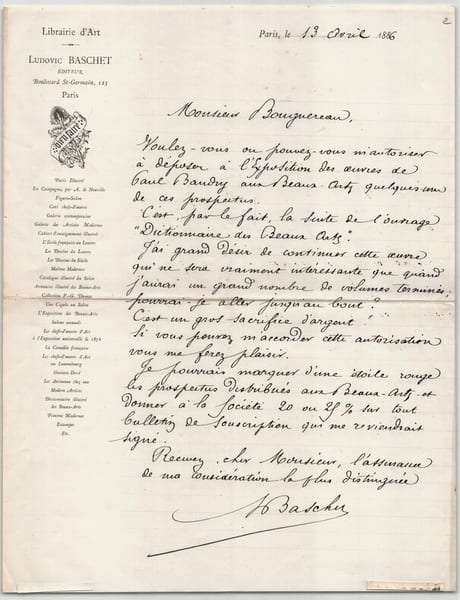 2
Librairie d'Art
Ludovic BASCHET
ÉDITEUR
Boulevard St-Germain, 125
Paris
Paris, le 13 Avril 1886
Monsieur Bouguereau,
Voulez-vous ou pouvez-vous m'autoriser
à déposer à l'Exposition des œuvres de
Paul Baudry aux Beaux-Arts quelques uns
de ces prospectus.
C'est, par le fait, la suite de l'ouvrage
"Dictionnaire des Beaux Arts".
J'ai grand désir de continuer cette œuvre
qui ne sera vraiment intéressante que quand
j'aurai un grand nombre de volumes terminés,
pourrai-je aller jusqu'au bout?
C'est un gros sacrifice d'argent!
Si vous pouvez m'accorder cette autorisation
vous me ferez plaisir.
Je pourrais marquer d'une étoile rouge
les prospectus distribués aux Beaux-Arts et
donner à la Société 20 ou 25 % sur tout
bulletin de souscription qui me reviendrait
signé.
Recevez, cher Monsieur, l'assurance
de ma considération la plus distinguée
LBaschet
Paris Illustré
En Campagne, par A. de Neuville
Figaro-Salon
Cent chefs-d'œuvre
Galerie contemporaine
Galerie des Artistes Modernes
Cahiers d'enseignement illustrés
L'École française au Louvre
Les Dessins du Louvre
Les Dessins du Siècle
Maîtres Modernes
Catalogue illustré du Salon
Annuaire illustré des Beaux-Arts
Collection F.-G. Dumas
Une Copie au Salon
L'Exposition des Beaux-Arts
Salons annuels
Les chefs-d'œuvre d'Art
à l'Exposition universelle de 1878
La Comédie française
Les chefs-d'œuvre d'Art
au Luxembourg
Gustave Doré
Les Animaux chez eux
Modern Artists
Dictionnaire illustré
des Beaux-Arts
Peintres Modernes
Estampes
Etc.